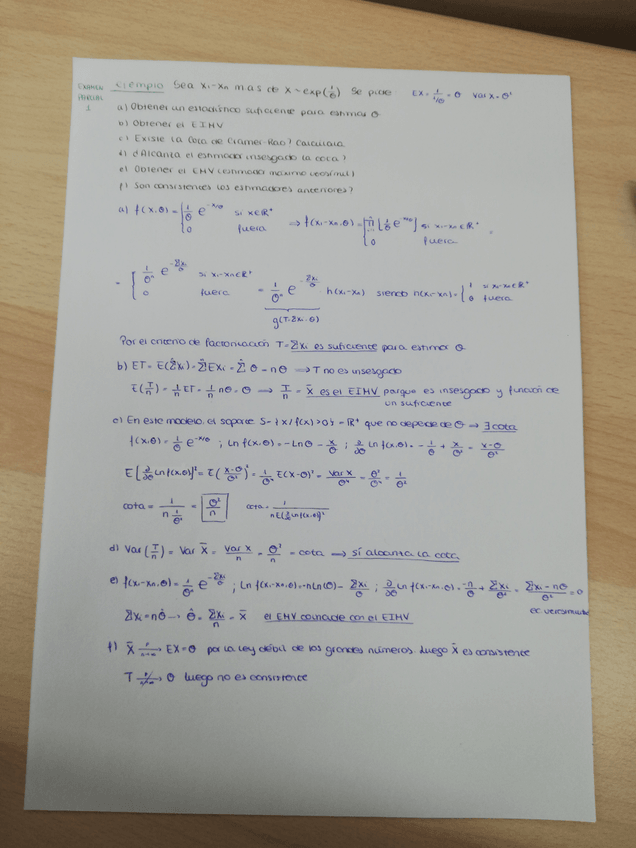 EXAMEN PARCIAL 1
Ejemplo Sea x₁-xₙ m.a.s de x~exp(1/θ) Se pide: EX = 1/(1/θ) = θ Var X = θ²
a) Obtener un estadístico suficiente para estimar θ
b) Obtener el EIMV
c) Existe la Cota de Cramer-Rao? Calcularla
d) ¿Alcanza el estimador insesgado la cota?
e) Obtener el EMV (estimador máximo verosímil)
f) Son consistentes los estimadores anteriores?
a) f(x,θ) = { 1/θ e^(-x/θ) si x∈ℝ⁺ ; 0 fuera ⟹ f(x₁-xₙ,θ) = { ∏ [1/θ e^(-xi/θ)] si x₁-xₙ∈ℝ⁺ ; 0 fuera =
= { 1/θⁿ e^(-Σxi/θ) si x₁-xₙ∈ℝ⁺ ; 0 fuera = 1/θⁿ e^(-Σxi/θ) h(x₁-xₙ) siendo h(x₁-xₙ) = { 1 si x₁-xₙ∈ℝ⁺ ; 0 fuera
g(T=Σxi, θ)
Por el criterio de factorización T=Σxi es suficiente para estimar θ
b) ET = E(Σxi) = ΣExi = Σ θ = nθ ⟹ T no es insesgado
E(T/n) = 1/n ET = 1/n nθ = θ ⟹ T/n = x̄ es el EIMV porque es insesgado y función de
un suficiente
c) En este modelo el soporte S = {x / f(x)>0} = ℝ⁺ que no depende de θ → ∃ cota
f(x,θ) = 1/θ e^(-x/θ) ; Ln f(x,θ) = -Lnθ - x/θ ; ∂/∂θ Ln f(x,θ) = -1/θ + x/θ² = (x-θ)/θ²
E[∂/∂θ Ln f(x,θ)]² = E((x-θ)/θ²)² = 1/θ⁴ E(x-θ)² = Var x/θ⁴ = θ²/θ⁴ = 1/θ²
cota = 1/(n 1/θ²) = θ²/n cota = 1/(nE[∂/∂θ Ln f(x,θ)]²)
d) Var(T/n) = Var X̄ = Var X/n = θ²/n = cota ⟹ sí alcanza la cota
e) f(x₁-xₙ,θ) = 1/θⁿ e^(-Σxi/θ) ; Ln f(x₁-xₙ,θ) = -nLn(θ) - Σxi/θ ; ∂/∂θ Ln f(x₁-xₙ,θ) = -n/θ + Σxi/θ² = (Σxi - nθ)/θ² = 0
ec. verosimilitud
Σxi = nθ → θ̂ = Σxi/n = x̄ el EMV coincide con el EIMV
f) X̄ →(p, n→∞) EX = θ por la Ley débil de los grandes números. Luego x̄ es consistente
T ↛(p, n→∞) θ luego no es consistente